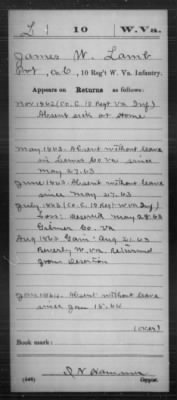 L 10 W.Va.
James W. Lamb
Pvt, Co. C, 10 Reg't W. Va. Infantry.
Appears on Returns as follows:
Nov 1862 (Co. C. 10 Regt Va Inf)
Absent sick at home
May 1863. Absent without leave
in Co Va since
May 27.63
June 1863. Absent without leave
since May 27.63
July 1863 (Co. C, 10 Regt W Va Inf)
Loss: Deserted May 28.63
Gilmer Co. Va
Aug 1863 Gain: Aug 21.63
Beverly W. Va, Returned
from Desertion
Jan 1864. Absent without leave
since Jan 15.64
(over)
Book mark:
(546) Copyist.